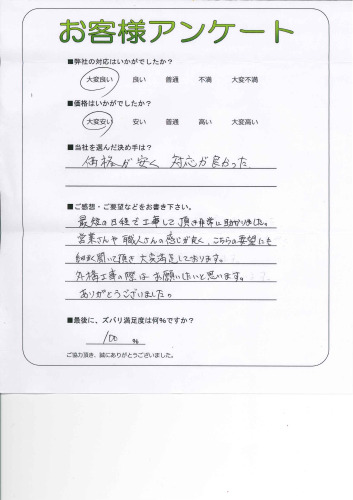 お客様アンケート
■弊社の対応はいかがでしたか?
大変良い 良い 普通 不満 大変不満
■価格はいかがでしたか?
大変安い 安い 普通 高い 大変高い
■当社を選んだ決め手は?
価格が安く 対応が良かった
■ご感想・ご要望などをお書き下さい。
最短の日程で工事して頂き非常に助かりました。
営業さんや職人さんの感じが良く、こちらの要望にも
細かく聞いて頂き大変満足しております。
外構工事の際はお願いしたいと思います。
ありがとうございました。
■最後に、ズバリ満足度は何%ですか?
100 %
ご協力頂き、誠にありがとうございました。